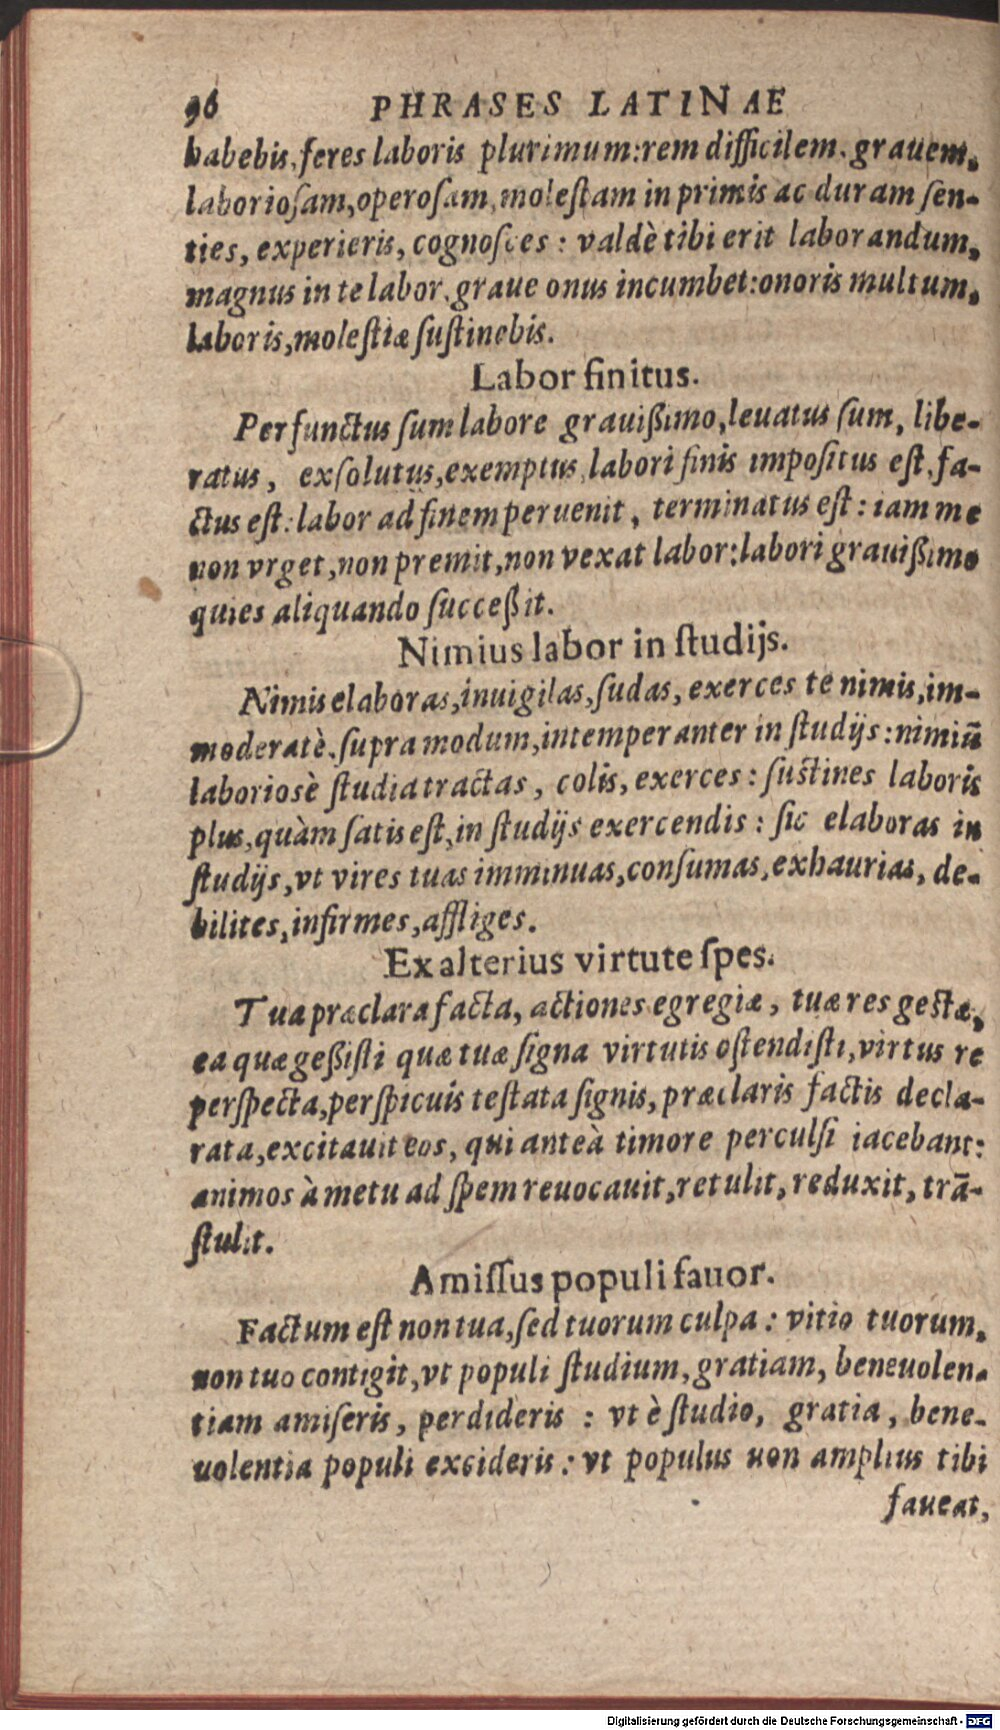 96 PHRASES LATINAE
habebis, feres laboris plurimum: rem difficilem, grauem,
laboriosam, operosam, molestam in primis ac duram sen-
ties, experieris, cognosces: valdè tibi erit laborandum,
magnus in te labor, graue onus incumbet: onoris multum,
laboris, molestiæ sustinebis.
Labor finitus.
Perfunctus sum labore grauißimo, leuatus sum, libe-
ratus, exsolutus, exemptus, labori finis impositus est, fa-
ctus est: labor ad finem peruenit, terminatus est: iam me
non vrget, non premit, non vexat labor: labori grauißimo
quies aliquando succeßit.
Nimius labor in studijs.
Nimis elaboras, inuigilas, sudas, exerces te nimis, im-
moderatè, supra modum, intemperanter in studijs: nimiū
laboriosè studia tractas, colis, exerces: sustines laboris
plus, quàm satis est, in studijs exercendis: sic elaboras in
studijs, vt vires tuas imminuas, consumas, exhaurias, de-
bilites, infirmes, affliges.
Ex alterius virtute spes.
Tua præclara facta, actiones egregiæ, tuæ res gestæ,
ea quæ geßisti quæ tuæ signa virtutis ostendisti, virtus re
perspecta, perspicuis testata signis, præclaris factis decla-
rata, excitauit eos, qui anteà timore perculsi iacebant:
animos à metu ad spem reuocauit, retulit, reduxit, trā-
stulit.
Amissus populi fauor.
Factum est non tua, sed tuorum culpa: vitio tuorum,
non tuo contigit, vt populi studium, gratiam, beneuolen-
tiam amiseris, perdideris: vt è studio, gratia, bene-
uolentia populi excideris: vt populus non amplius tibi
faueat,
Digitalisierung gefördert durch die Deutsche Forschungsgemeinschaft - DFG